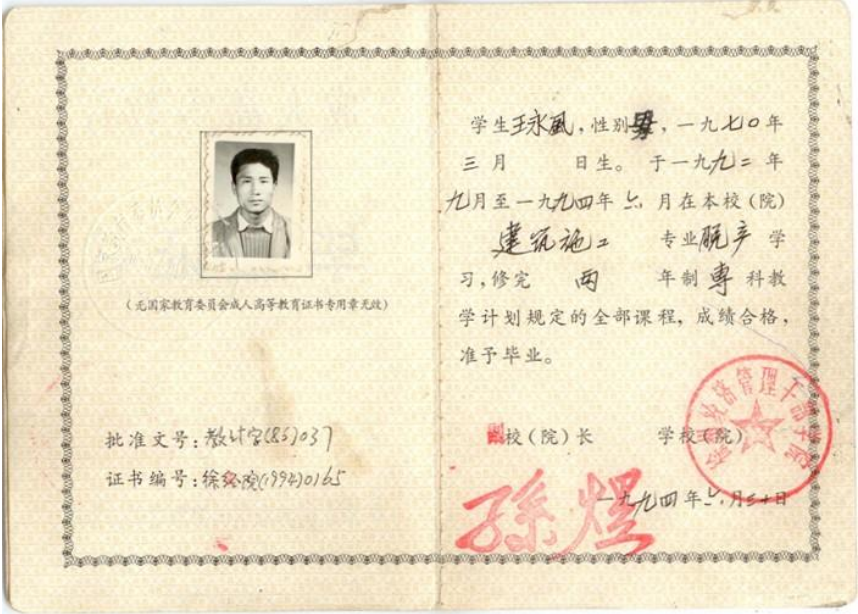 (无国家教育委员会成人高等教育证书专用章无效)
批准文号:教计字(85)037
证书编号:徐经院(1994)0165
学生王永凤,性别男,一九七〇年
三月 日生。于一九九二年
九月至一九九四年六月在本校(院)
建筑施工 专业脱产学
习,修完 两 年制专科教
学计划规定的全部课程,成绩合格,
准予毕业。
校(院)长 学校(院)
孙煜
一九九四年六月三十日
经济管理干部学院